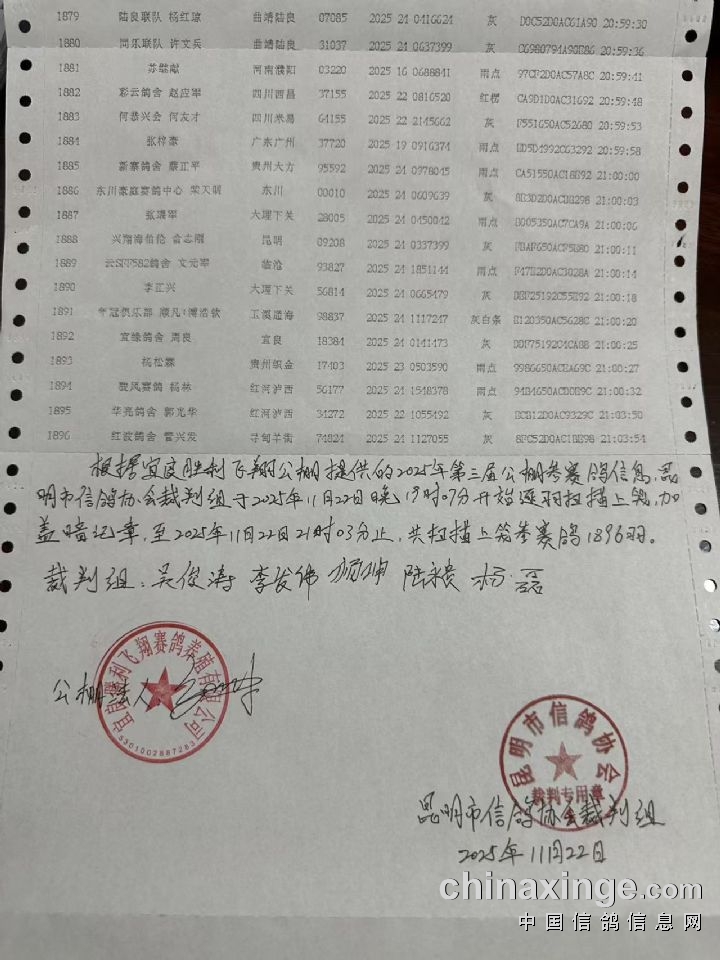 1879 陆良联队 杨红琼 曲靖陆良 07085 2025 24 0416624 灰 D0C52D0AC61A90 20:59:30
1880 同乐联队 许文兵 曲靖陆良 31037 2025 24 0637399 灰 20:59:36
1881 苏继献 河南濮阳 03220 2025 16 0688841 雨点 97CF2D0AC57A8C 20:59:41
1882 彩云鸽舍 赵应军 四川西昌 37155 2025 22 0816520 红楞 CA9D1D0AC31692 20:59:48
1883 何恭兴会 何友才 四川米易 64155 2025 22 2145662 灰 F551650AC52680 20:59:53
1884 张梓豪 广东广州 37720 2025 19 0916374 雨点 20:59:58
1885 新寨鸽舍 蔡正平 贵州大方 95592 2025 24 0978045 雨点 CA51550AC18B92 21:00:00
1886 东川豪庭赛鸽中心 东川 00010 2025 24 0609639 灰 21:00:03
1887 张璟军 大理下关 28005 2025 24 0450042 雨点 21:00:06
1888 兴翔海伯伦 俞志刚 昆明 09208 2025 24 0337399 灰 21:00:11
1889 文元军 临沧 93827 2025 24 1851144 雨点 21:00:14
1890 李正兴 大理下关 56814 2025 24 0665479 灰 21:00:18
1891 年冠俱乐部 玉溪通海 98837 2025 24 1117247 灰白条 21:00:20
1892 宜缘鸽舍 周良 宜良 18384 2025 24 0141473 灰 21:00:25
1893 杨松霖 贵州织金 17403 2025 23 0503590 雨点 21:00:27
1894 骏风赛鸽 杨林 红河泸西 56177 2025 24 1548378 雨点 21:00:32
1895 华亮鸽舍 郭光华 红河泸西 34272 2025 22 1055492 灰 21:03:50
1896 红波鸽舍 管兴发 寻甸羊街 74824 2025 24 1127055 灰 21:03:54
根据宜良胜利飞翔公棚提供的2025年第三届公棚参赛鸽信息,昆
明市信鸽协会裁判组于2025年11月22日晚19时07分开始逐羽扫描上笼,加
盖暗记章,至2025年11月22日21时03分止,共扫描上笼参赛鸽1896羽。
裁判组:吴俊涛 李发伟 杨坤 陆永贵 杨磊
宜良胜利飞翔赛鸽养殖有限公司
公棚法人
5301002887283
昆明市信鸽协会
裁判专用章
昆明市信鸽协会裁判组
2025年11月22日
chinaxinge.com
中国信鸽信息网